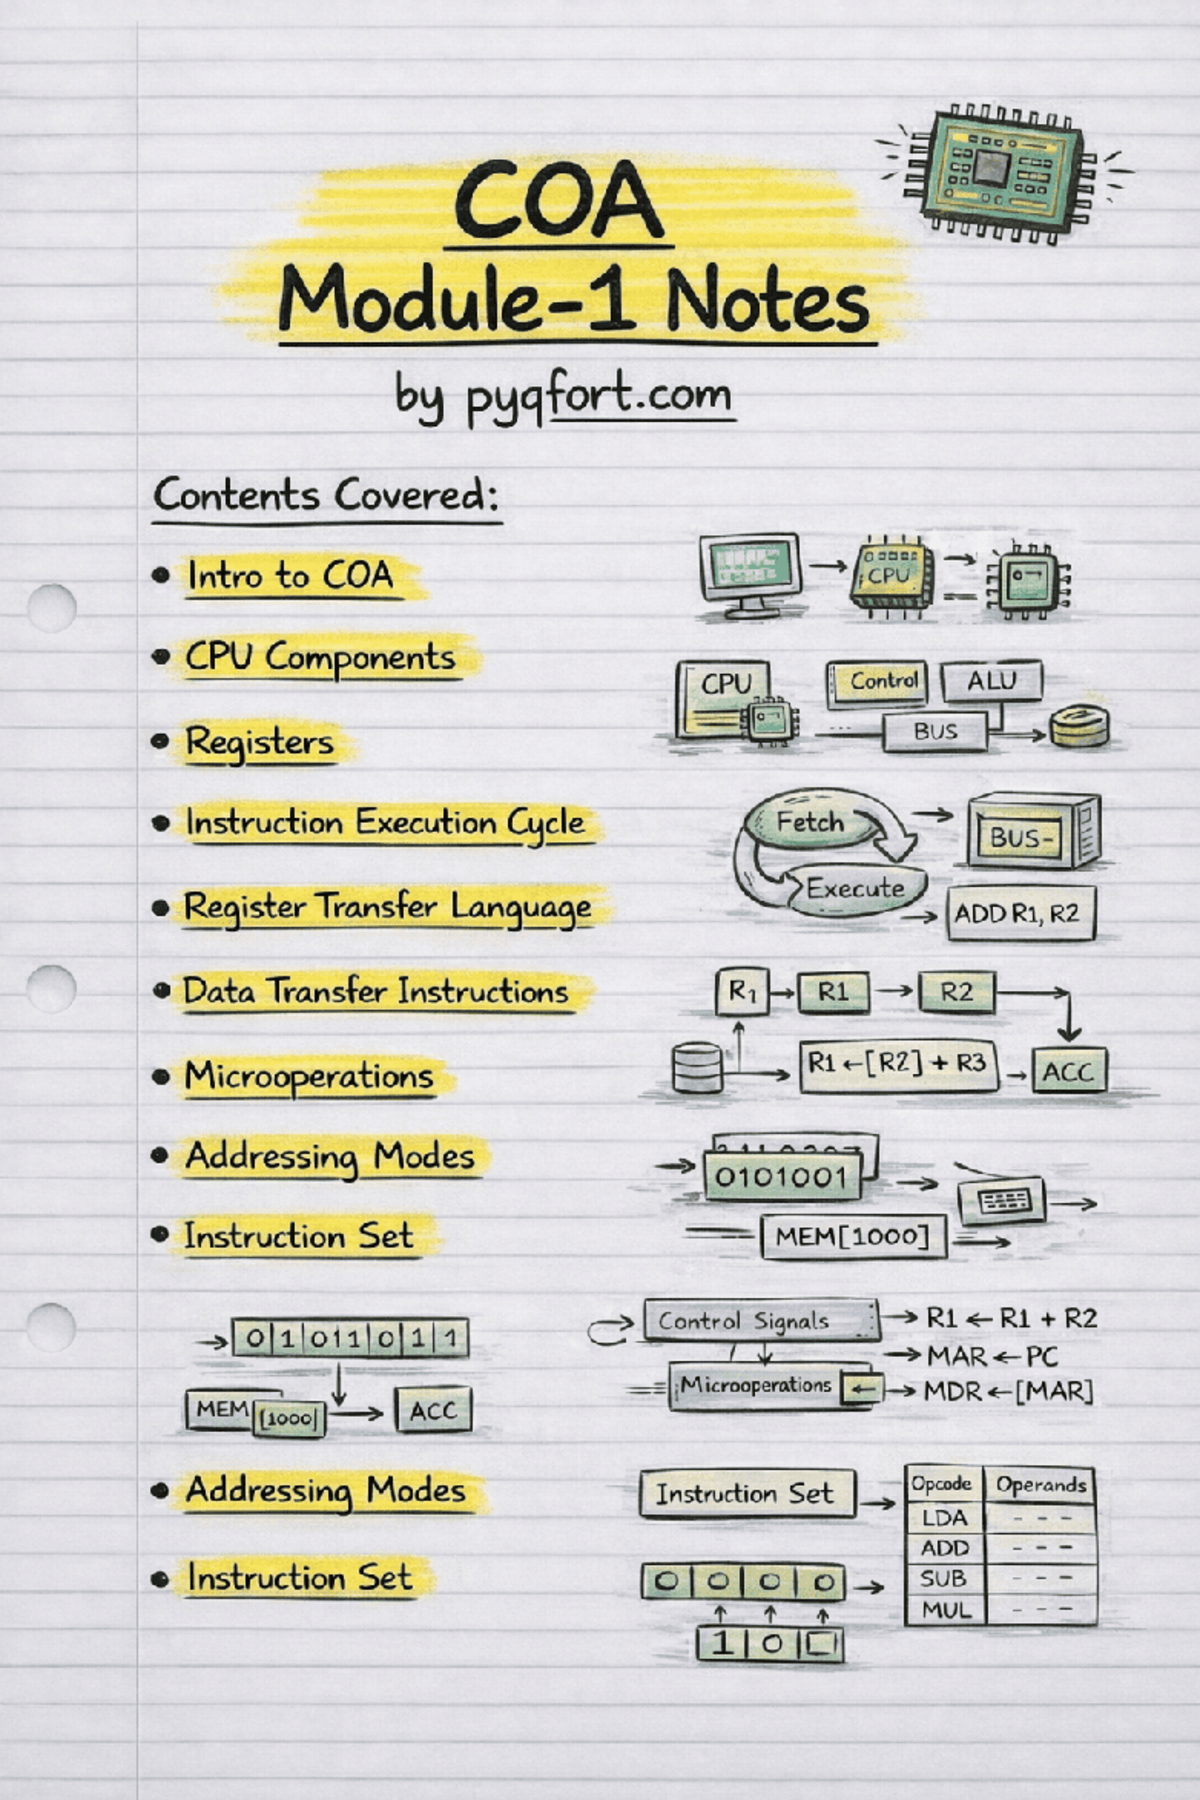 COA
Module-1 Notes
by pyqfort.com
Contents Covered:
• Intro to COA
CPU
• CPU Components
CPU
Control
ALU
BUS
• Registers
• Instruction Execution Cycle
Fetch
BUS-
Execute
• Register Transfer Language
ADD R1, R2
• Data Transfer Instructions
R1
R1
R2
• Microoperations
R1←[R2] + R3
ACC
• Addressing Modes
0101001
• Instruction Set
MEM[1000]
0 1 011 0 1 1
MEM
[1000]
ACC
Control Signals
R1 ← R1 + R2
MAR ← PC
Microoperations
MDR ←[MAR]
• Addressing Modes
Instruction Set
Opcode Operands
LDA - - -
ADD - - -
SUB - - -
MUL - - -
• Instruction Set
0 0 0 0
1 0